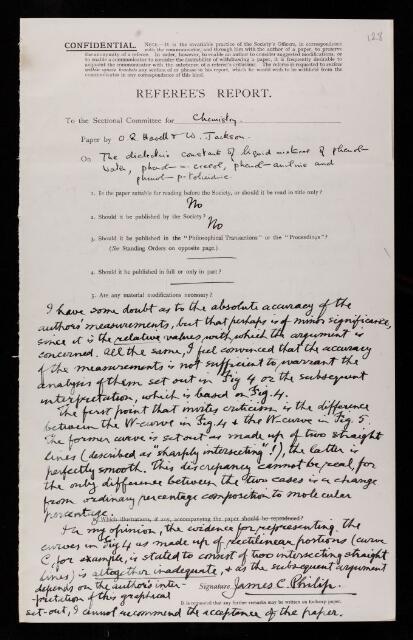 128
CONFIDENTIAL. NOTE.—It is the invariable practice of the Society's Officers, in correspondence
with the communicator, and through him with the author of a paper, to preserve
the anonymity of a referee. In order, however, to enable an author to consider suggested modifications, or
to enable a communicator to consider the desirability of withdrawing a paper, it is frequently desirable to
acquaint the communicator with the substance of a referee's criticism. The referee is requested to excise
communicated in any correspondence of this kind.
REFEREE'S REPORT.
To the Sectional Committee for Chemistry.
Paper by O. R. Howell & W. Jackson.
On The dielectric constant of liquid mixtures of phenol-
water, phenol-m-cresol, phenol-aniline and
phenol-p-toluidine
1. Is the paper suitable for reading before the Society, or should it be read in title only?
No
2. Should it be published by the Society?
No
3. Should it be published in the "Philosophical Transactions" or the "Proceedings"?
(See Standing Orders on opposite page.)
4. Should it be published in full or only in part?
5. Are any material modifications necessary?
I have some doubt as to the absolute accuracy of the
authors' measurements, but that perhaps is of minor significance,
since it is the relative values with which the argument is
concerned. All the same, I feel convinced that the accuracy
of the measurements is not sufficient to warrant the
analysis of them set out in Fig 4 or the subsequent
interpretation, which is based on Fig. 4.
The first point that invites criticism is the difference
between the W-curve in Fig. 4 & the W curve in Fig. 5.
The former curve is set out as made up of two straight
lines (described as "sharply intersecting"!), the latter is
perfectly smooth. This discrepancy cannot be real, for
the only difference between the two cases is a change
from ordinary percentage composition to molecular
percentage.
6. Which illustrations, if any, accompanying the paper should be reproduced?
In my opinion, the evidence for representing the
curves in Fig 4 as made up of rectilinear portions (curve
C, for example, is stated to consist of two intersecting straight
lines) is altogether inadequate, & as the subsequent argument
depends on the authors' inter-
pretation of this graphical
Signature James C. Philip.
It is requested that any further remarks may be written on foolscap paper.
set-out, I cannot recommend the acceptance of the paper.